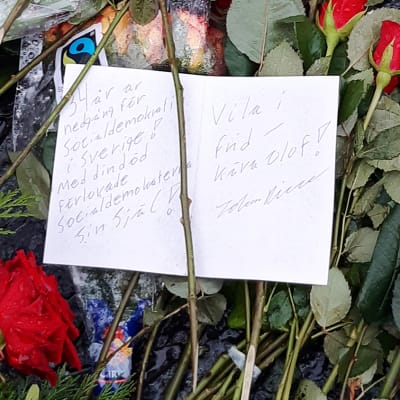 34 år av
nedgång för
Socialdemokrati
i Sverige!
Med din död
förlorade
Socialdemokraterna
Sin Själ!
Vila i
frid –
Kära Olof!